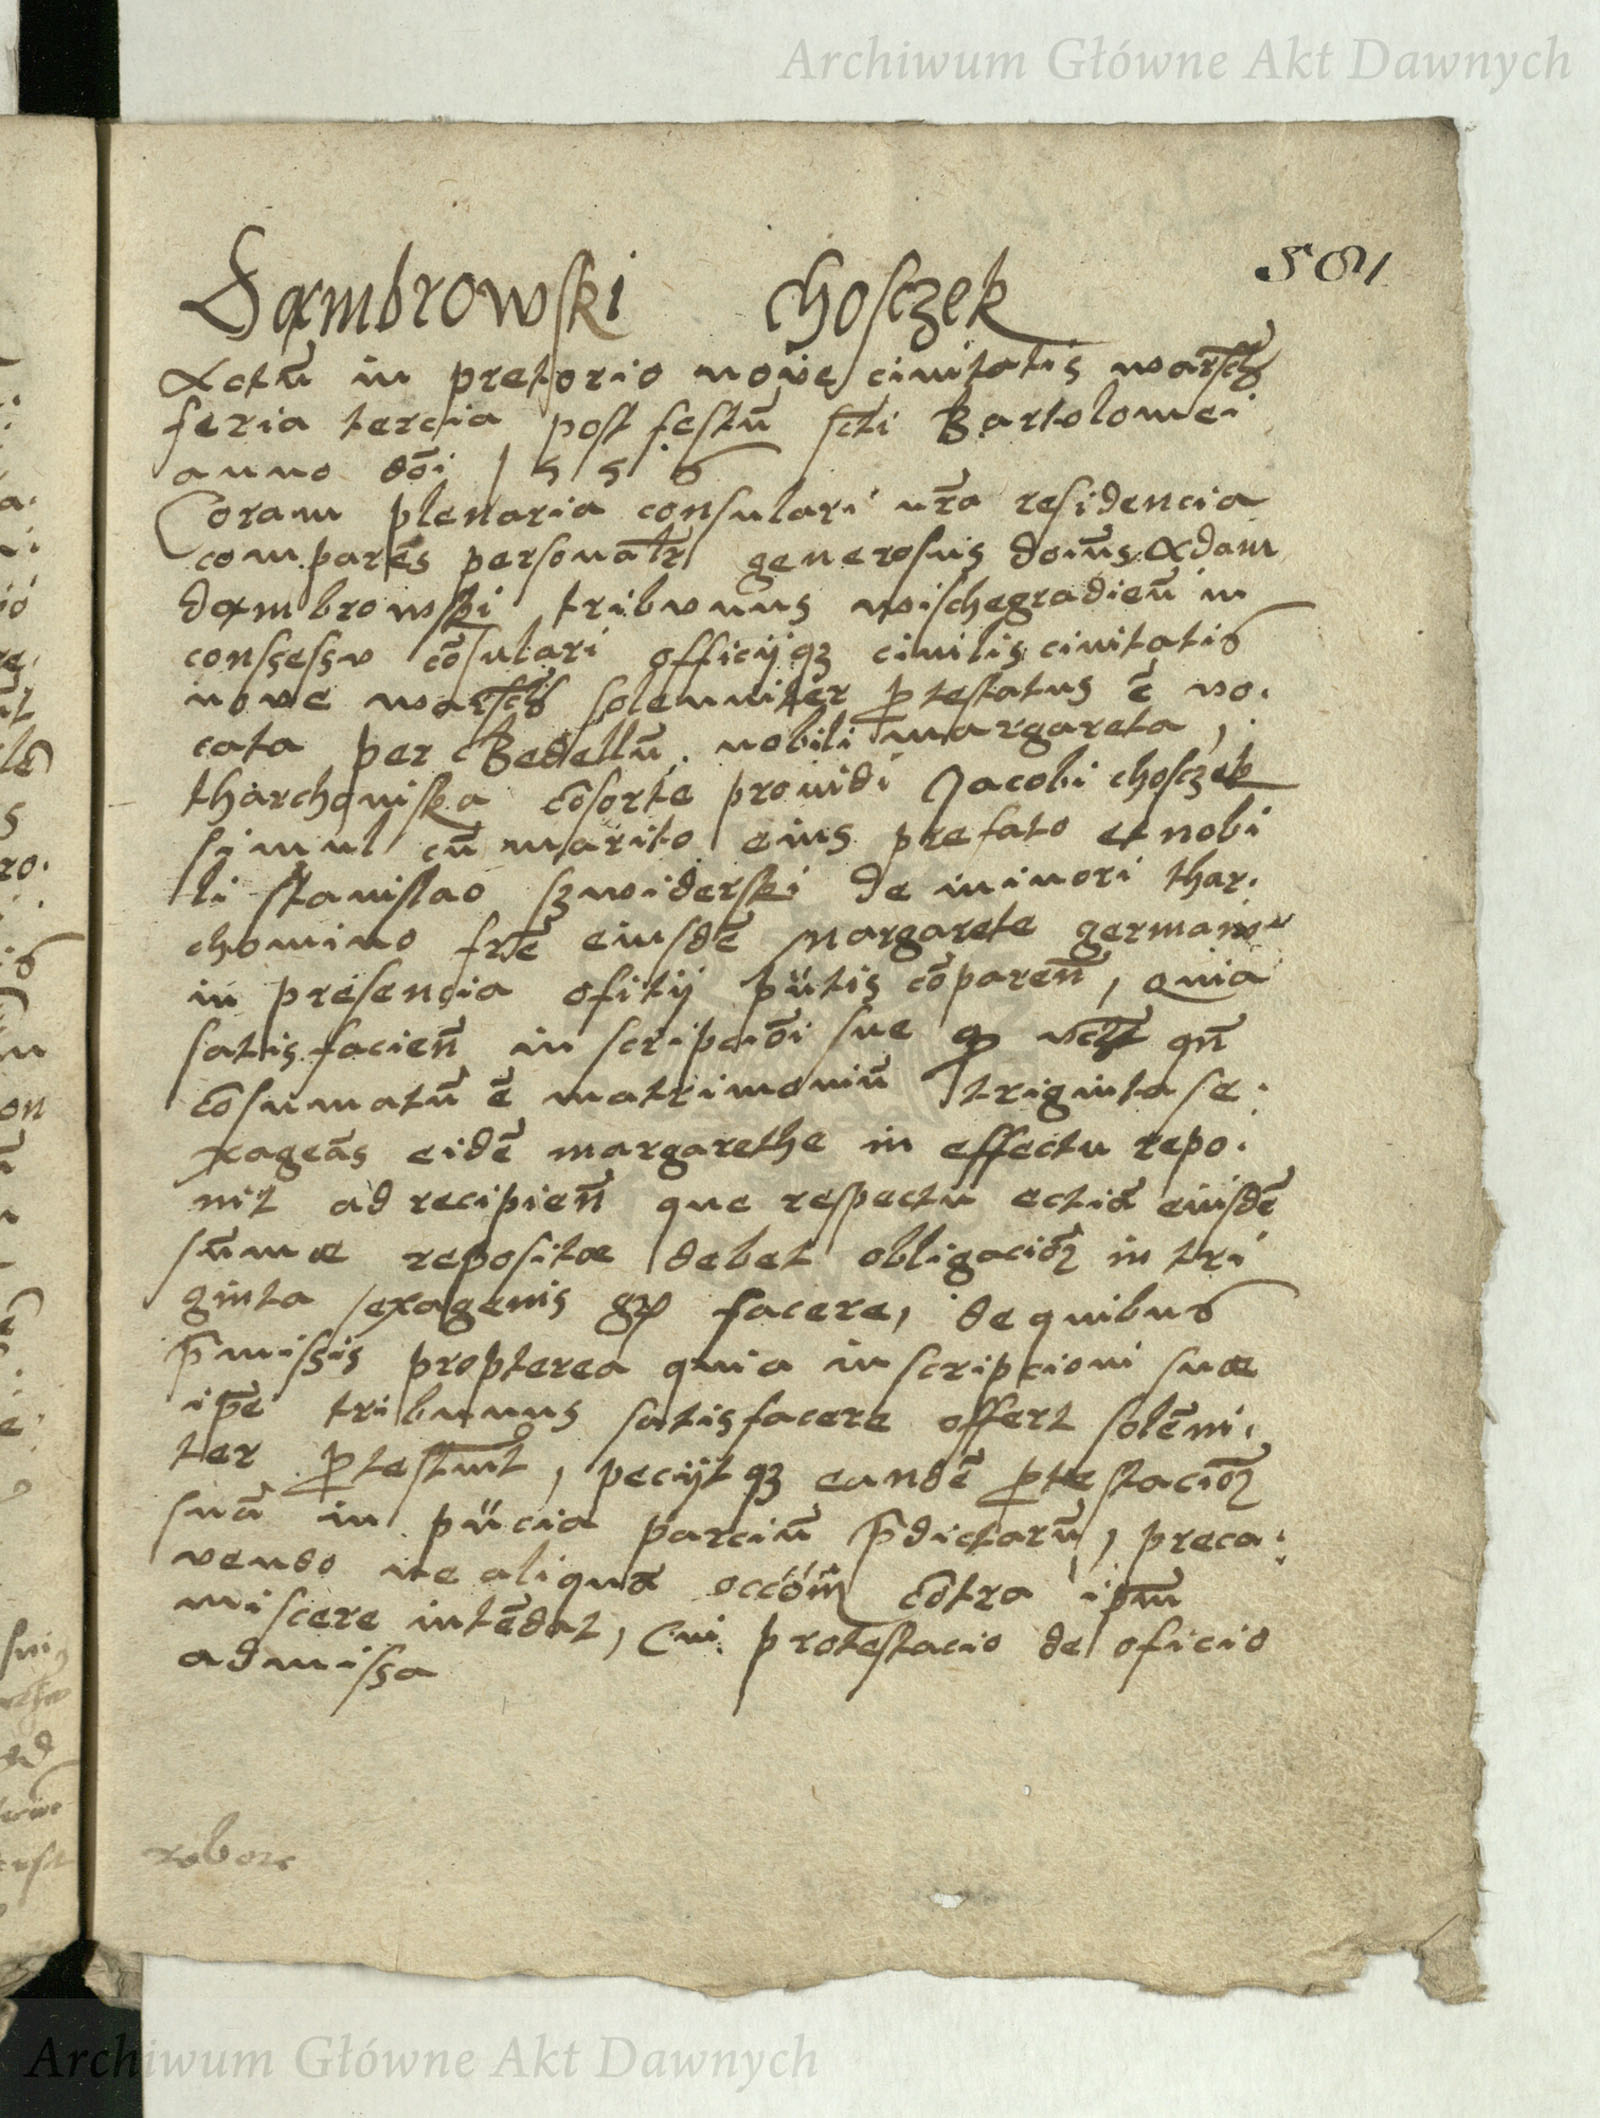 Archiwum Główne Akt Dawnych
581
Dąmbrowski Chosczek
Actū in pretorio nove civitatis warsch
feria tercia post festū scti Bartolomei
anno dōi 1556
Coram plenaria consulari nr̄a residencia
comparēs personalr generosus doīus Adam
dąmbrowski tribunus wischegradieñ in
consessv cōsulari officijqz civilis civitatis
nove warsch solenniter ptestatus ē vo.
cata per Bedellū nobili margareta,
tharchoniska cōsorte providi Jacobi chosczek
simul cū marito eius prefato et nobi
li stanislao szwiderski de minori thar.
chomino fr̄e eiusdē margarete germano
in presencia ofitij pn̄tis cōpareñ, quia
satis facieñ inscripciōi sue qn̄
cōsumatū ē matrimoniū triginta se.
xageās eidē margarethe in effectu repo.
nit ad recipieñ que respectu ectiā eiusdē
sūmæ repositæ debet obligacioz in tri
ginta sexagenis facere, de quibus
p̄missis propterea quia inscripcioni suæ
ip̄e tribunus satisfacere offert solēni.
ter ptestatur, peciјtqz eandē ptestacioz
suā in pn̄cia parciū p̄dictarū, preca:
vendo ne aliquā occōm cōtra ipm̄
miscere intēdat, Cui protestacio de oficio
admissa
robore
Archiwum Główne Akt Dawnych